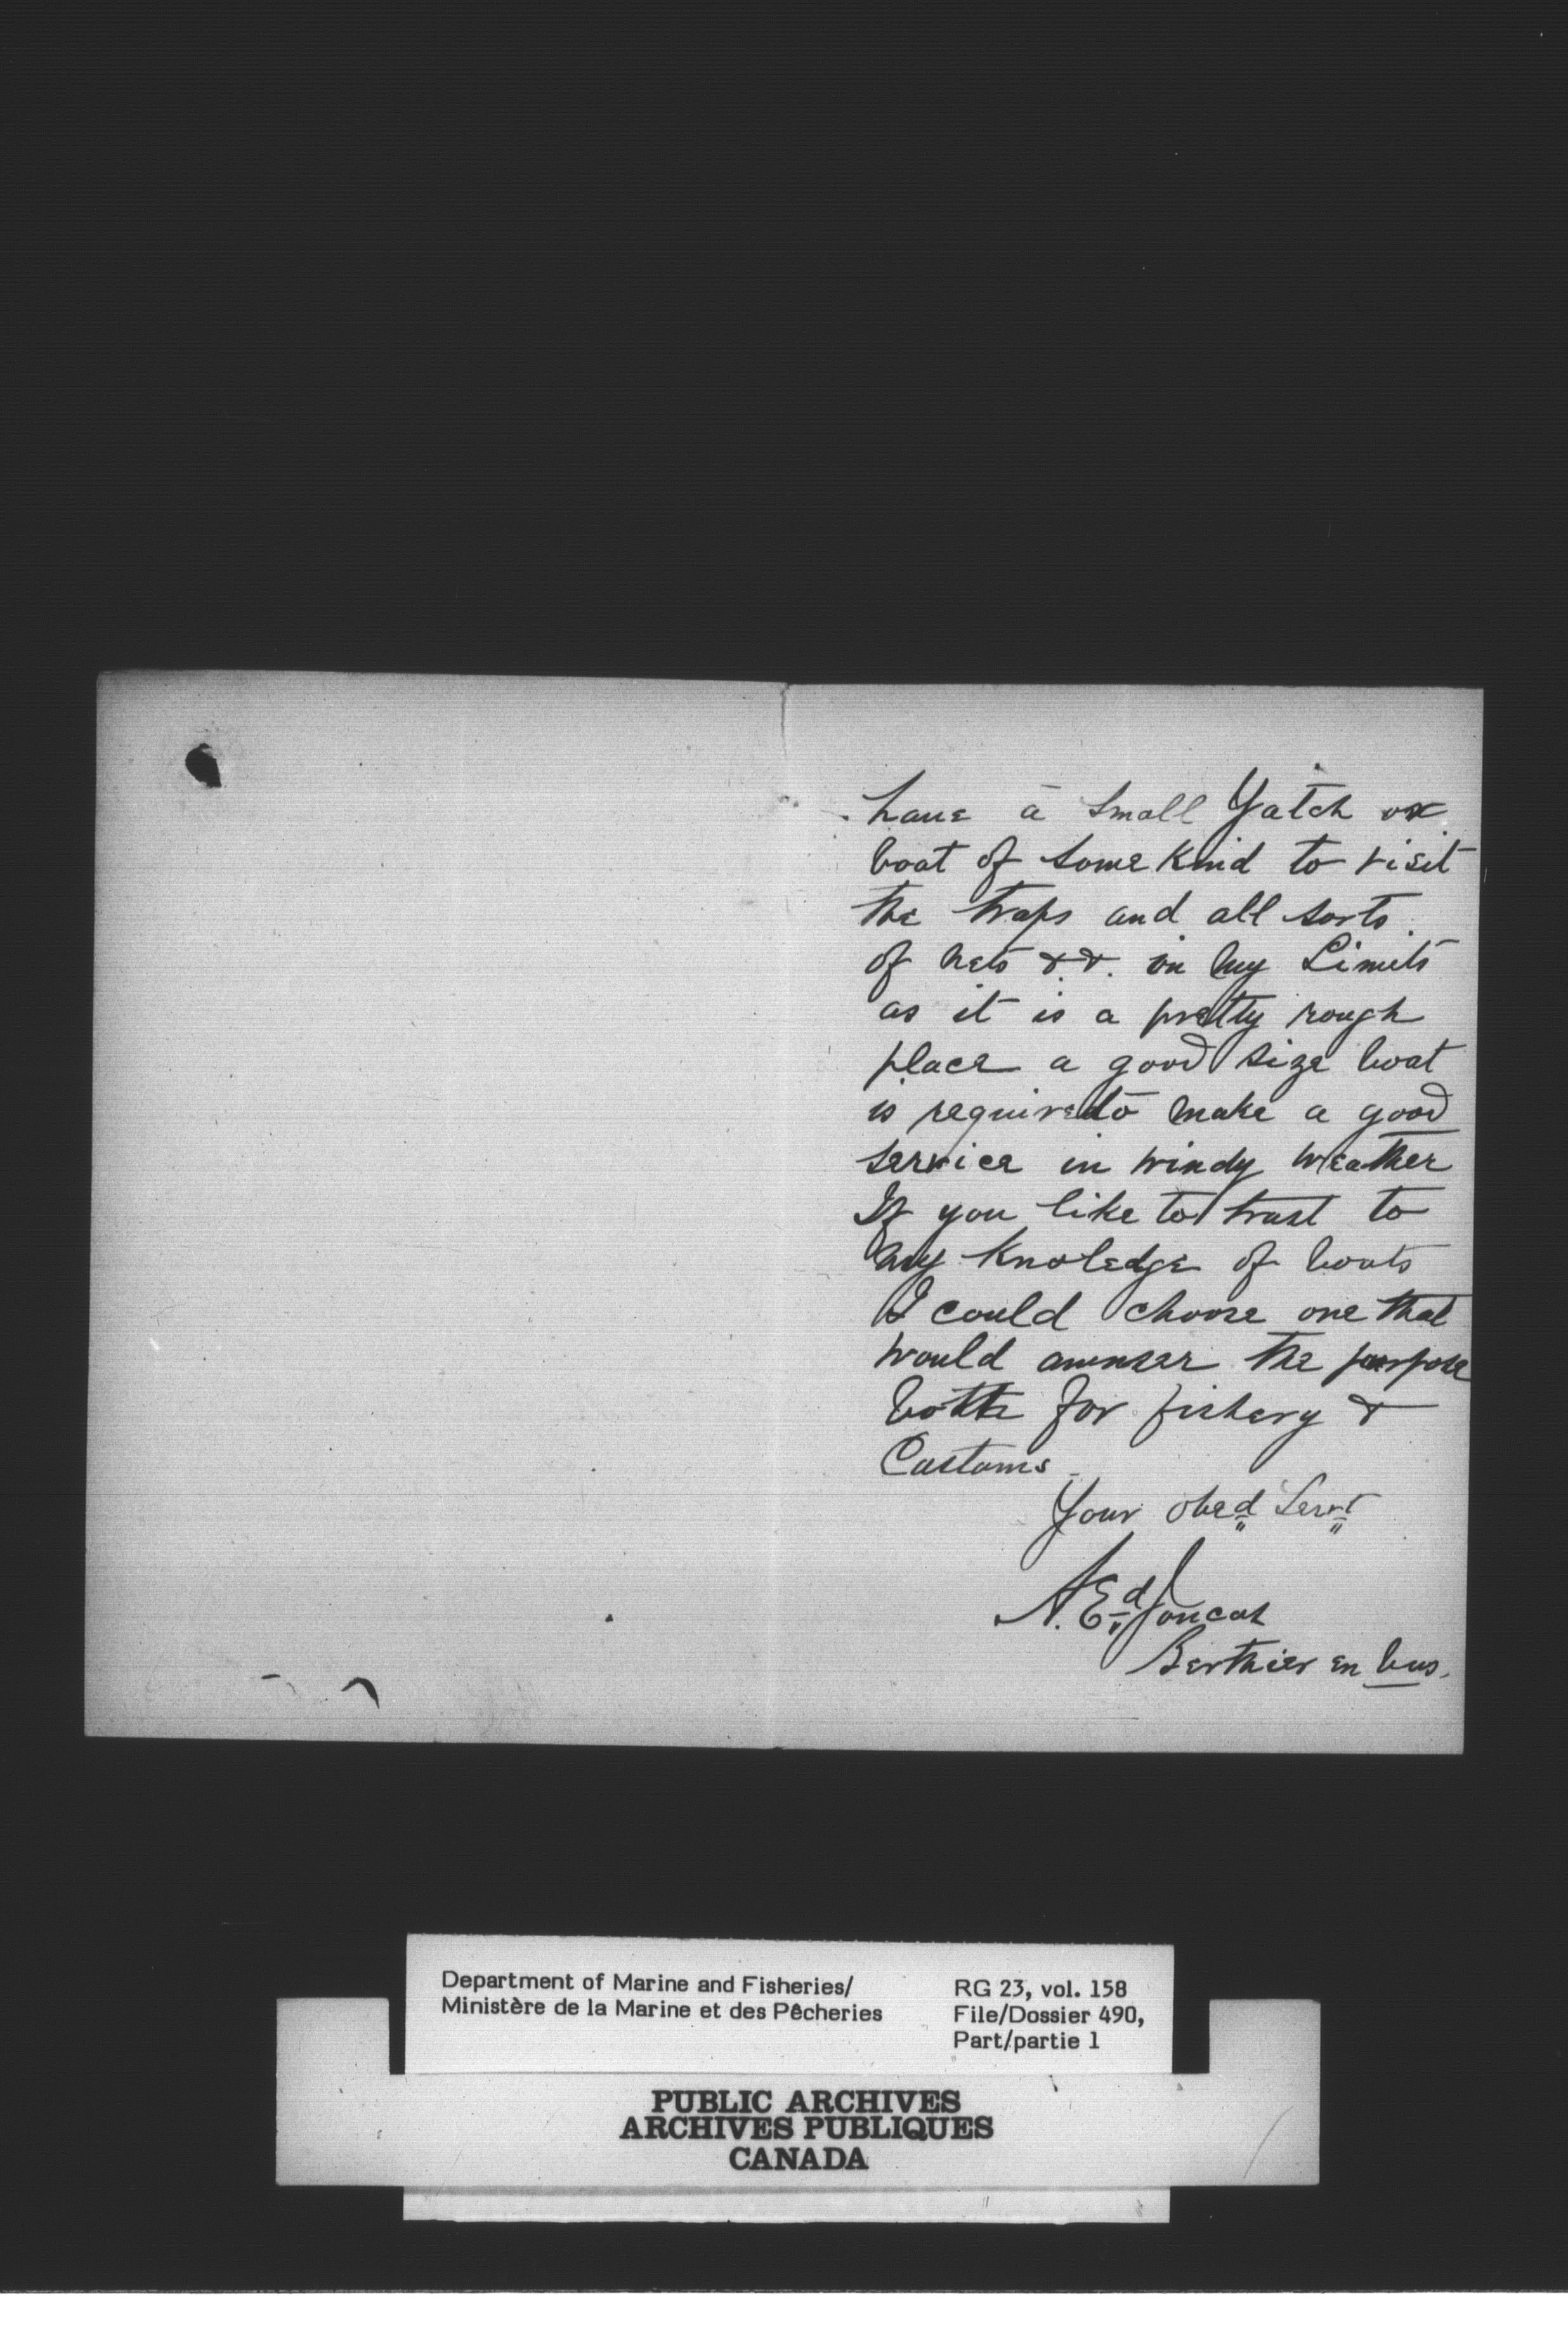 have a small Yatch or
boat of some kind to visit
the traps and all sorts
of nets &.&. in my Limits
as it is a pretty rough
place a good size boat
is required to make a good
service in windy weather
If you like to trust to
my knoledge of boats
I could choose one that
would awnser the purpose
bothe for fishery &
Customs_
Your obed Servt
A. Ed Joncas
Berthier en bas.
Department of Marine and Fisheries/
Ministère de la Marine et des Pêcheries
RG 23, vol. 158
File/Dossier 490,
Part/partie 1
PUBLIC ARCHIVES
ARCHIVES PUBLIQUES
CANADA